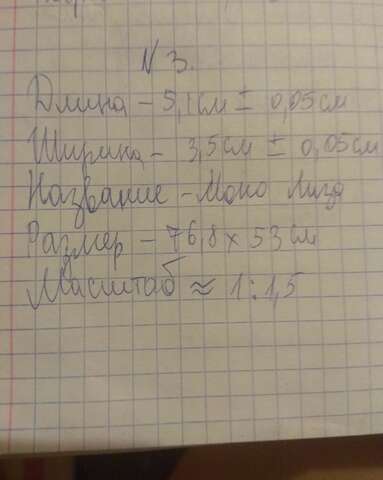 N 3.
Длина - 5,1 см ± 0,05 см
Ширина - 3,5 см ± 0,05 см
Название - Моно Лиза
Размер - 76,8 x 53 см
Масштаб ≈ 1:1,5